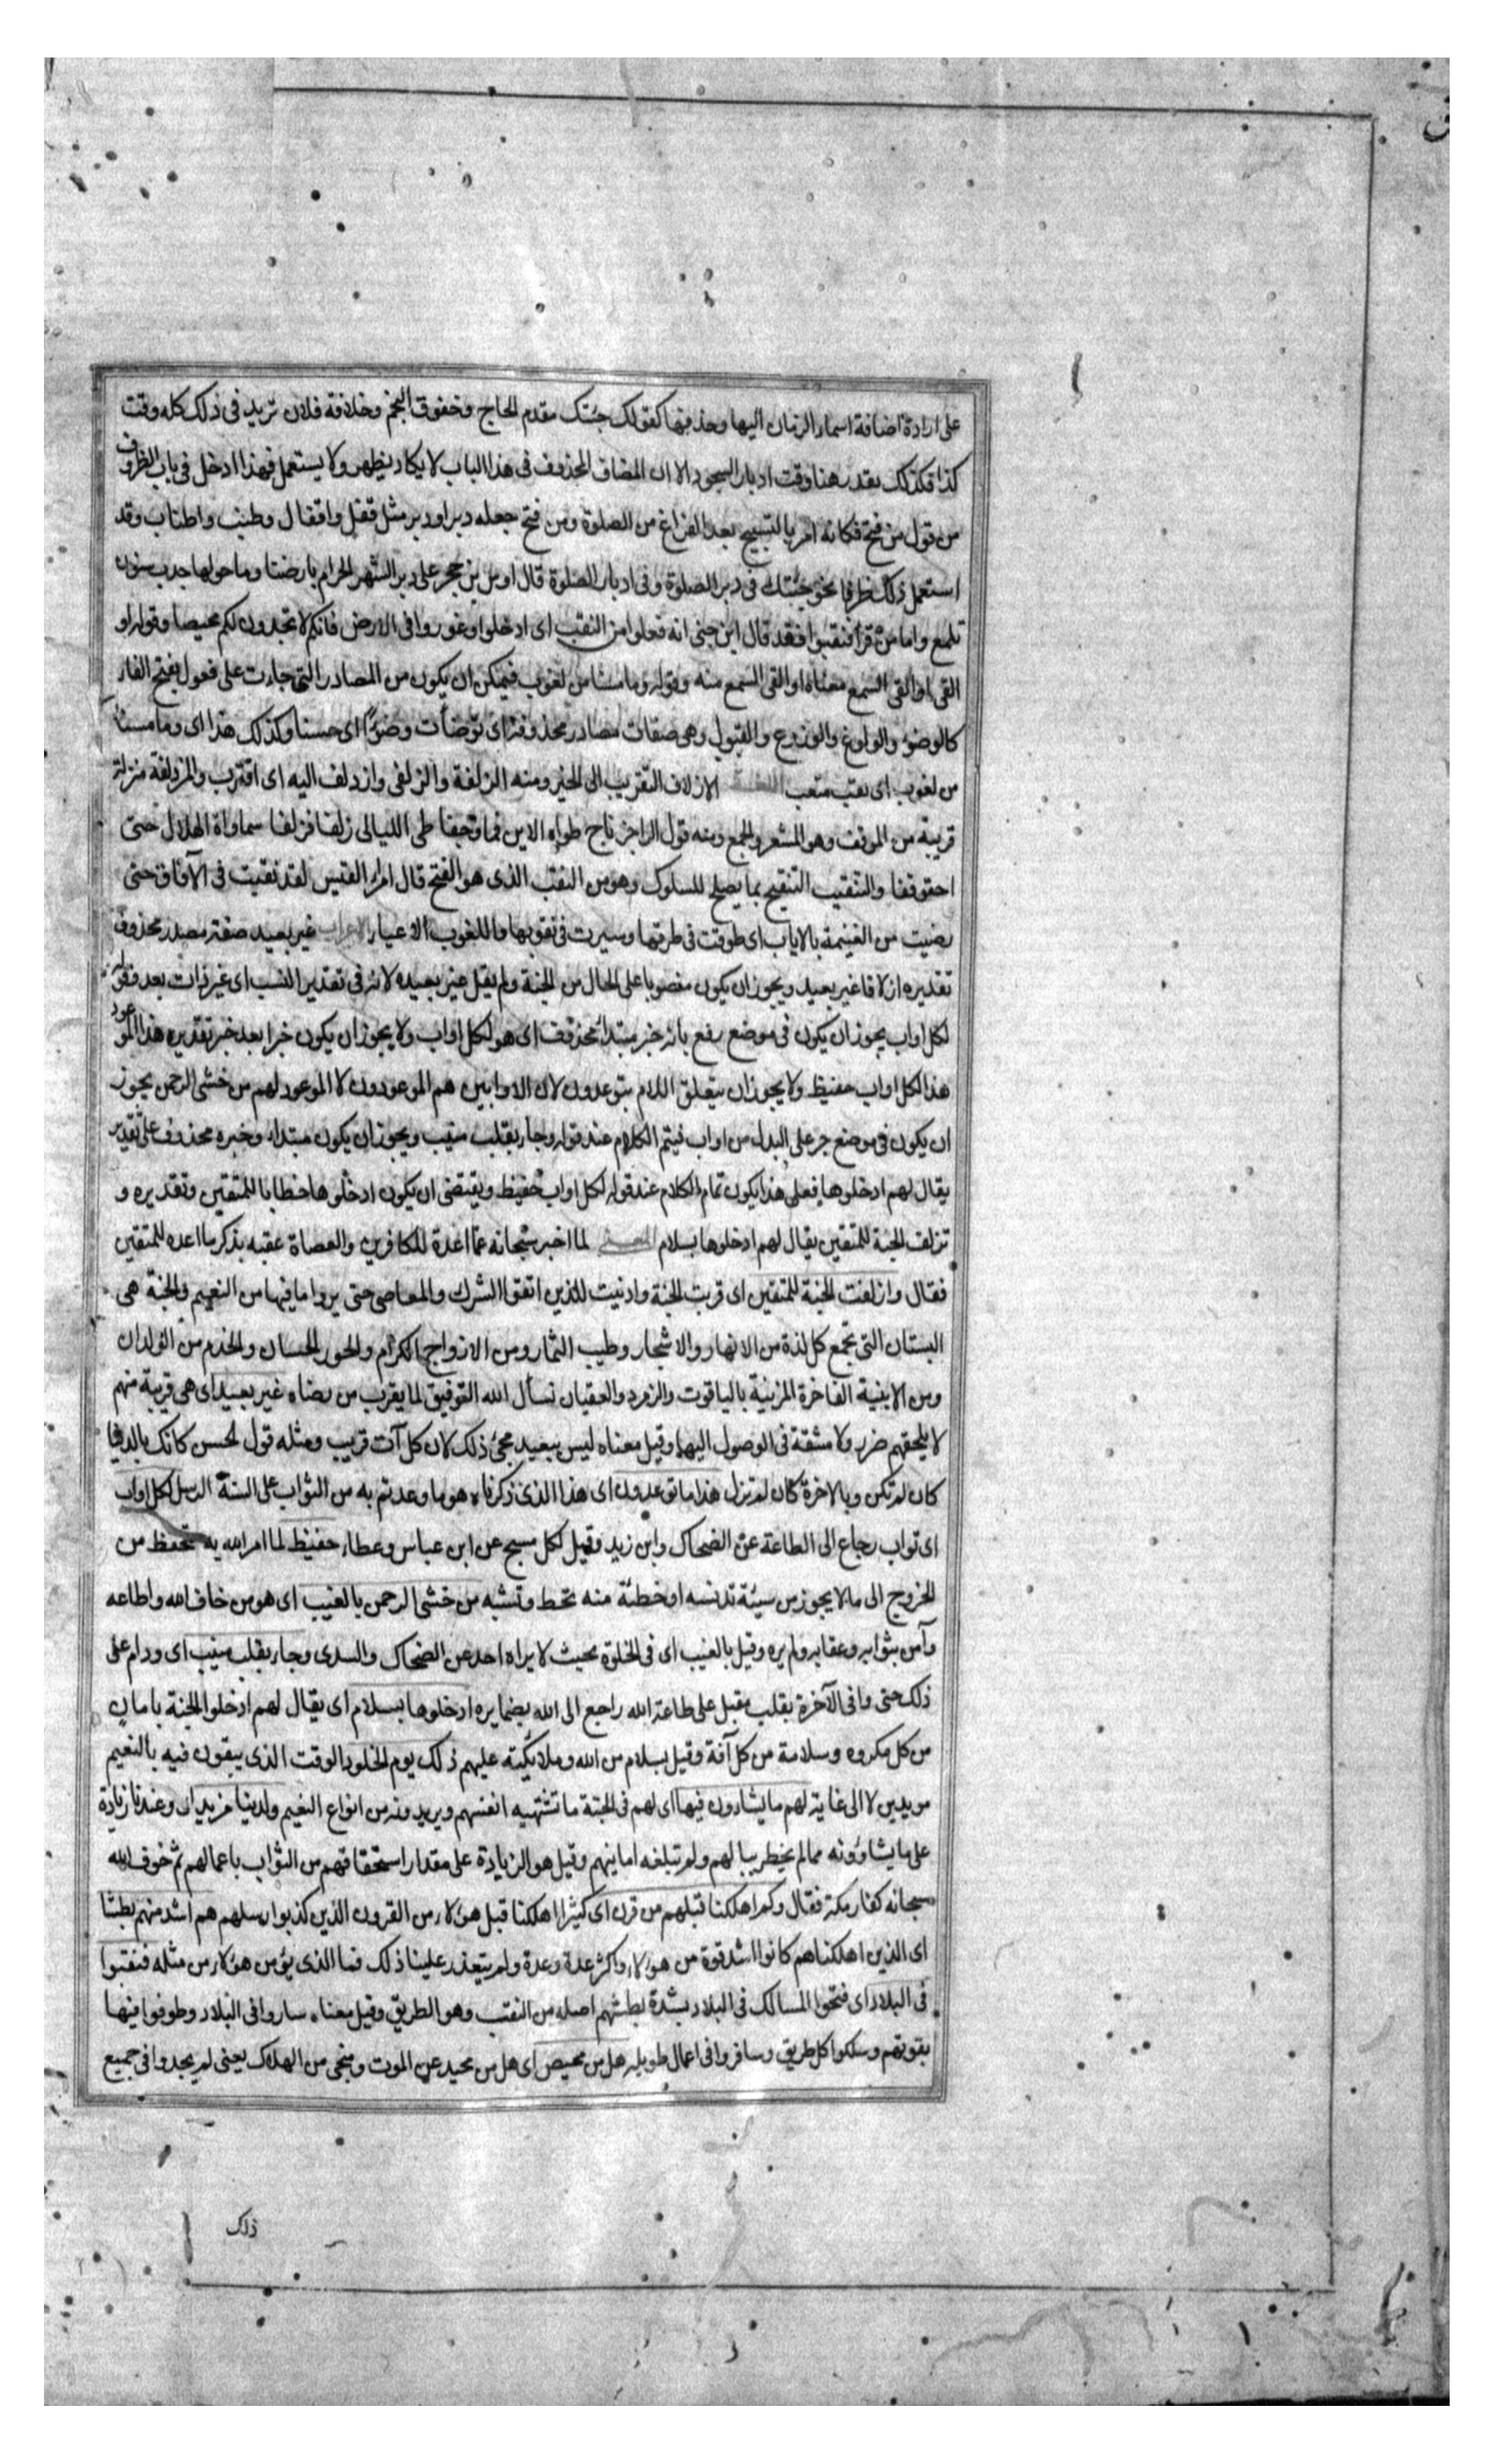 على ارادة اضافة اسماء الزمان اليها وحذفها كقولك جئتك مقدم الحاج وخفوق النجم وخلافة فلان تريد في ذلك كله وقت
كذا فكذلك يقدر هنا وقت ادبار السجود الا ان المضاف المحذوف في هذا الباب لا يكاد يظهر ولا يستعمل فهذا ادخل في باب الظروف
من قول من فتح فكانه امر بالتسبيح بعد الفراغ من الصلوة ومن فتح جعله دبر او دبر مثل قفل واقفال وطنب واطناب وقد
استعمل ذلك ظرفا نحو جئتك في دبر الصلوة وفي ادبار الصلوة قال اوس بن حجر على دبر الشهر الحرام بارضنا وما حولها جدب سنون
تلمع واما من قرأ فنقبوا فقد قال ابن جني انه فعلوا من النقب اى ادخلوا وغوروا في الارض فانكم لا تجدون لكم محيصا وقوله او
القى او القي السمع معناه او القي السمع منه وقوله وما مسنا من لغوب فيمكن ان يكون من المصادر التي جاءت على فعول بفتح الفاء
كالوضوء والولوغ والوزوع والقبول وهي صفات مصادر محذوفة اى توضأت وضوءا اى حسنا وكذلك هذا اى وما مسنا
من لغوب اى تعب متعب اللغة الازلاف التقريب الى الخير ومنه الزلفة والزلفى وازدلف اليه اى اقترب والمزدلفة منزلة
قريبة من الموقف وهو المشعر والجمع ومنه قول الراجز ناج طواه الاين مما وجفا طي الليالى زلفا فزلفا سماوة الهلال حتى
احقوقفا والتنقيب التنقيح بما يصلح للسلوك وهو من النقب الذى هو الفتح قال امرء القيس لقد نقبت في الآفاق حتى
رضيت من الغنيمة بالاياب اى طوفت في طرقها وسيرت في نقوبها واللغوب الاعياء الاعراب غير بعيد صفة مصدر محذوف
تقديره ازلافا غير بعيد ويجوز ان يكون منصوبا على الحال من الجنة ولم يقل غير بعيده لانه في تقدير النسب اى غير ذات بعد وقوله
لكل اواب يجوز ان يكون في موضع رفع بانه خبر مبتدأ محذوف اى هو لكل اواب ولا يجوز ان يكون خبرا بعد خبر تقديره هذا الموعود
هذا لكل اواب حفيظ ولا يجوز ان يتعلق اللام بتوعدون لان الاوابين هم الموعودون لا الموعود لهم من خشي الرحمن يجوز
ان يكون في موضع جر على البدل من اواب فيتم الكلام عند قوله وجاء بقلب منيب ويجوز ان يكون مبتداء وخبره محذوف على تقدير
يقال لهم ادخلوها فعلى هذا يكون تمام الكلام عند قوله لكل اواب حفيظ ويقتضي ان يكون ادخلوها خطابا للمتقين وتقديره و
تزلف الجنة للمتقين يقال لهم ادخلوها بسلام المعنى لما اخبر سبحانه عما اعده للكافرين والعصاة عقبه بذكر ما اعده للمتقين
فقال وازلفت الجنة للمتقين اى قربت الجنة وادنيت للذين اتقوا الشرك والمعاصي حتى يروا ما فيها من النعيم والجنة هي
البستان التي تجمع كل لذة من الانهار والاشجار وطيب الثمار ومن الازواج الكرام والحور الحسان والخدم من الولدان
ومن الابنية الفاخرة المزينة بالياقوت والزمرد والعقيان نسأل الله التوفيق لما يقرب من رضاه غير بعيد اى هي قريبة منهم
لا يلحقهم ضرر ولا مشقة في الوصول اليها وقيل معناه ليس ببعيد مجئ ذلك لان كل آت قريب ومثله قول الحسن كانك بالدنيا
كان لم تكن وبالاخرة كان لم تزل هذا ما توعدون اى هذا الذى ذكرناه هو ما وعدتم به من الثواب على السنة الرسل لكل اواب
اى تواب رجاع الى الطاعة عن الضحاك وابن زيد وقيل لكل مسبح عن ابن عباس وعطاء حفيظ لما امر الله به تحفظ من
الخروج الى ما لا يجوز من سيئة تدنسه او خطئة منه تحط وتشبه من خشي الرحمن بالغيب اى هو من خاف الله واطاعه
وآمن بثوابه وعقابه ولم يره وقيل بالغيب اى في الخلوة بحيث لا يراه احد عن الضحاك والسدى وجاء بقلب منيب اى ودام على
ذلك حتى وافى الآخرة بقلب مقبل على طاعة الله راجع الى الله بضمايره ادخلوها بسلام اى يقال لهم ادخلوا الجنة بامان
من كل مكروه وسلامة من كل آفة وقيل بسلام من الله وملائكته عليهم ذلك يوم الخلود الوقت الذى يبقون فيه بالنعيم
مويدين لا الى غاية لهم ما يشاؤن فيها اى لهم في الجنة ما تشتهيه انفسهم ويريدونه من انواع النعيم ولدينا مزيد اى وعندنا زيادة
على ما يشاؤونه مما لم يخطر ببالهم ولم تبلغه امانيهم وقيل هو الزيادة على مقدار استحقاقهم من الثواب باعمالهم ثم خوف الله
سبحانه كفار مكة فقال وكم اهلكنا قبلهم من قرن اى كثيرا اهلكنا قبل هؤلاء من القرون الذين كذبوا رسلهم هم اشد منهم بطشا
اى الذين اهلكناهم كانوا اشد قوة من هؤلاء واكثر عدة وعدة ولم يتعذر علينا ذلك فما الذى يؤمن هؤلاء من مثله فنقبوا
في البلاد اى فتحوا المسالك في البلاد بشدة بطشهم اصله من النقب وهو الطريق وقيل معناه ساروا في البلاد وطوفوا فيها
بقوتهم وسلكوا كل طريق وسافروا في اعمال طويلة هل من محيص اى هل من محيد عن الموت ومنجى من الهلاك يعنى لم يجدوا في جميع
ذلك